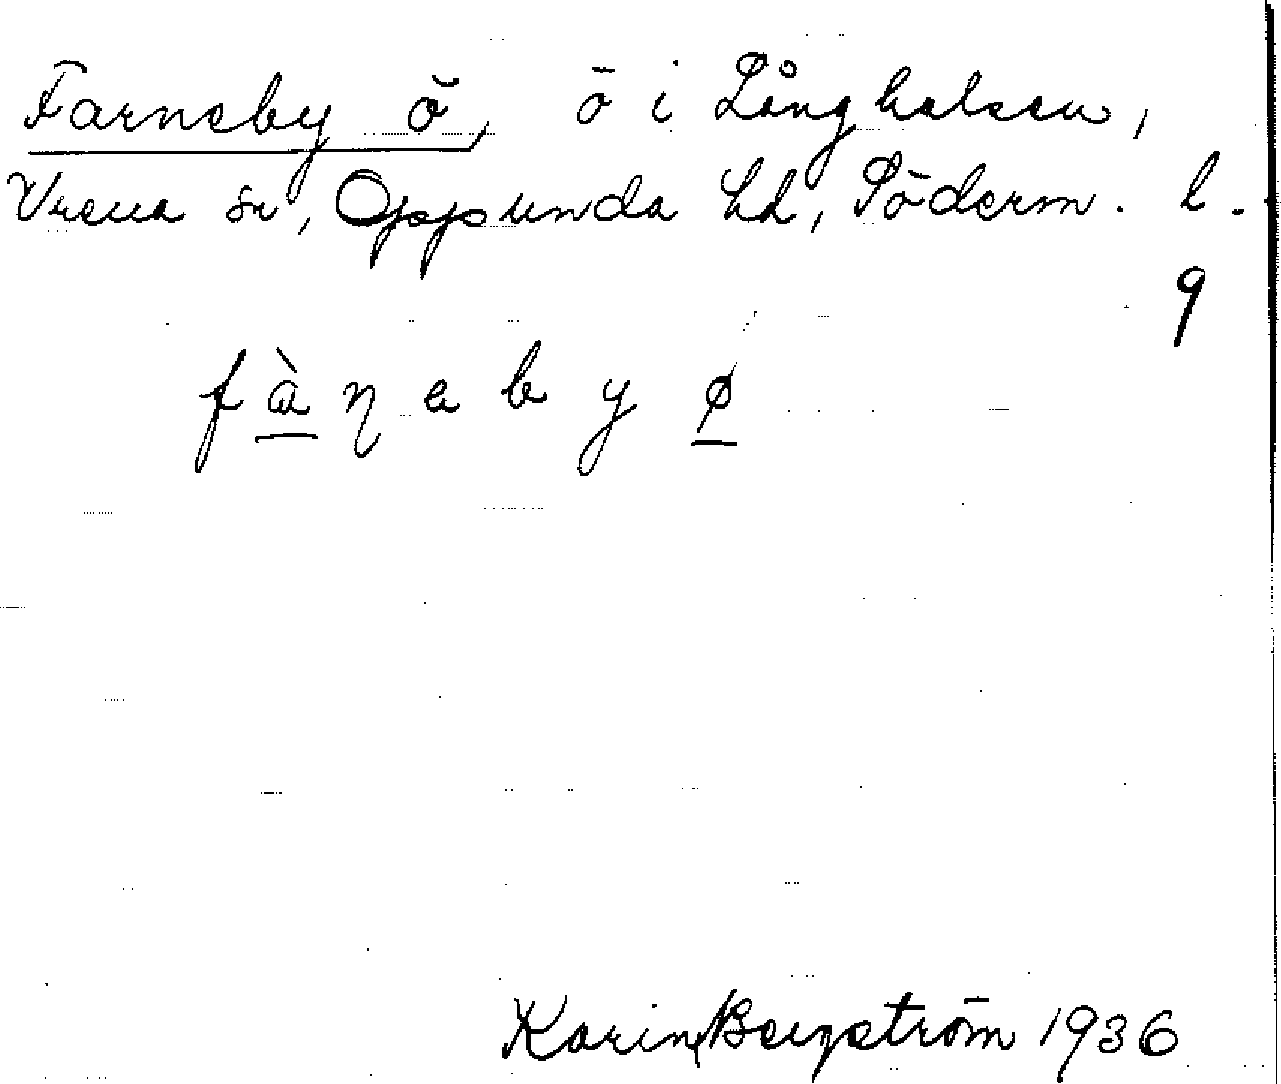 Farneby ö, ö i Långhalsen,
Vrena sn, Oppunda hd, Söderm. l.
9
fàηeby ø
Karin Bergström 1936